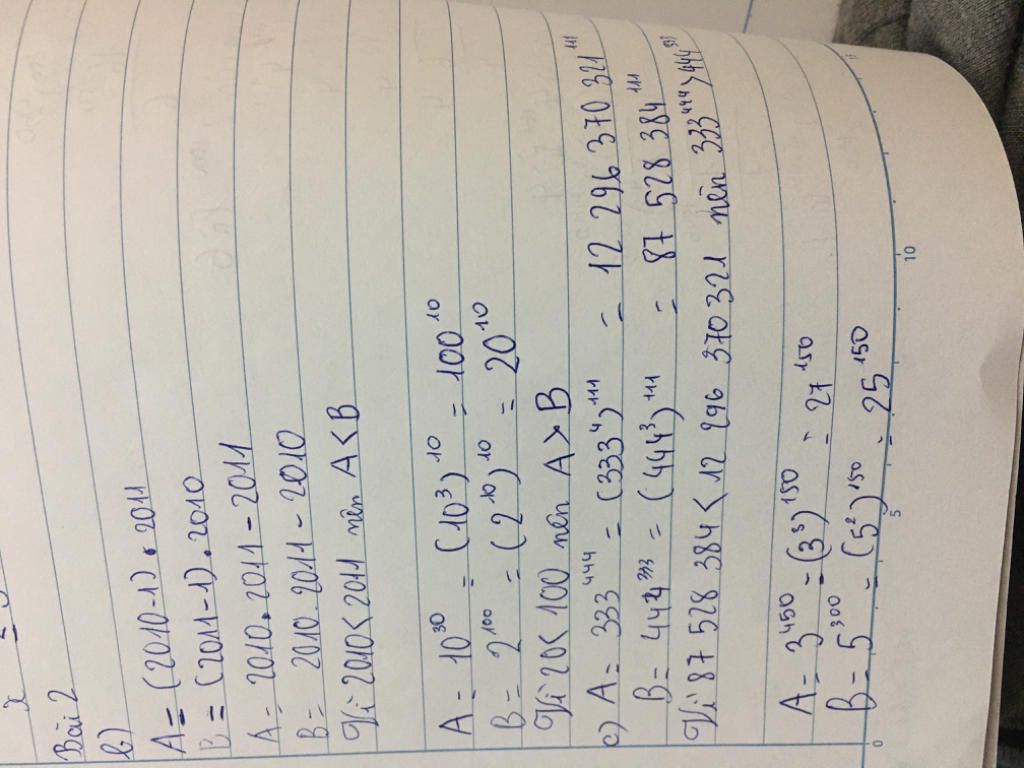 Bài 2
b)
A = (2010-1) . 2011
B = (2011-1) . 2010
A = 2010 . 2011 - 2011
B = 2010 . 2011 - 2010
Vì 2010 < 2011 nên A < B
A = 10³⁰ = (10³)¹⁰ = 100¹⁰
B = 2¹⁰⁰ = (2¹⁰)¹⁰ = 20¹⁰
Vì 20 < 100 nên A > B
c) A = 333⁴⁴⁴ = (333⁴)¹¹¹ = 12 296 370 321¹¹¹
B = 444³³³ = (444³)¹¹¹ = 87 528 384¹¹¹
Vì 87 528 384 < 12 296 370 321 nên 333⁴⁴⁴ > 444³³³
A = 3⁴⁵⁰ = (3³)¹⁵⁰ = 27¹⁵⁰
B = 5³⁰⁰ = (5²)¹⁵⁰ = 25¹⁵⁰
0 5 10